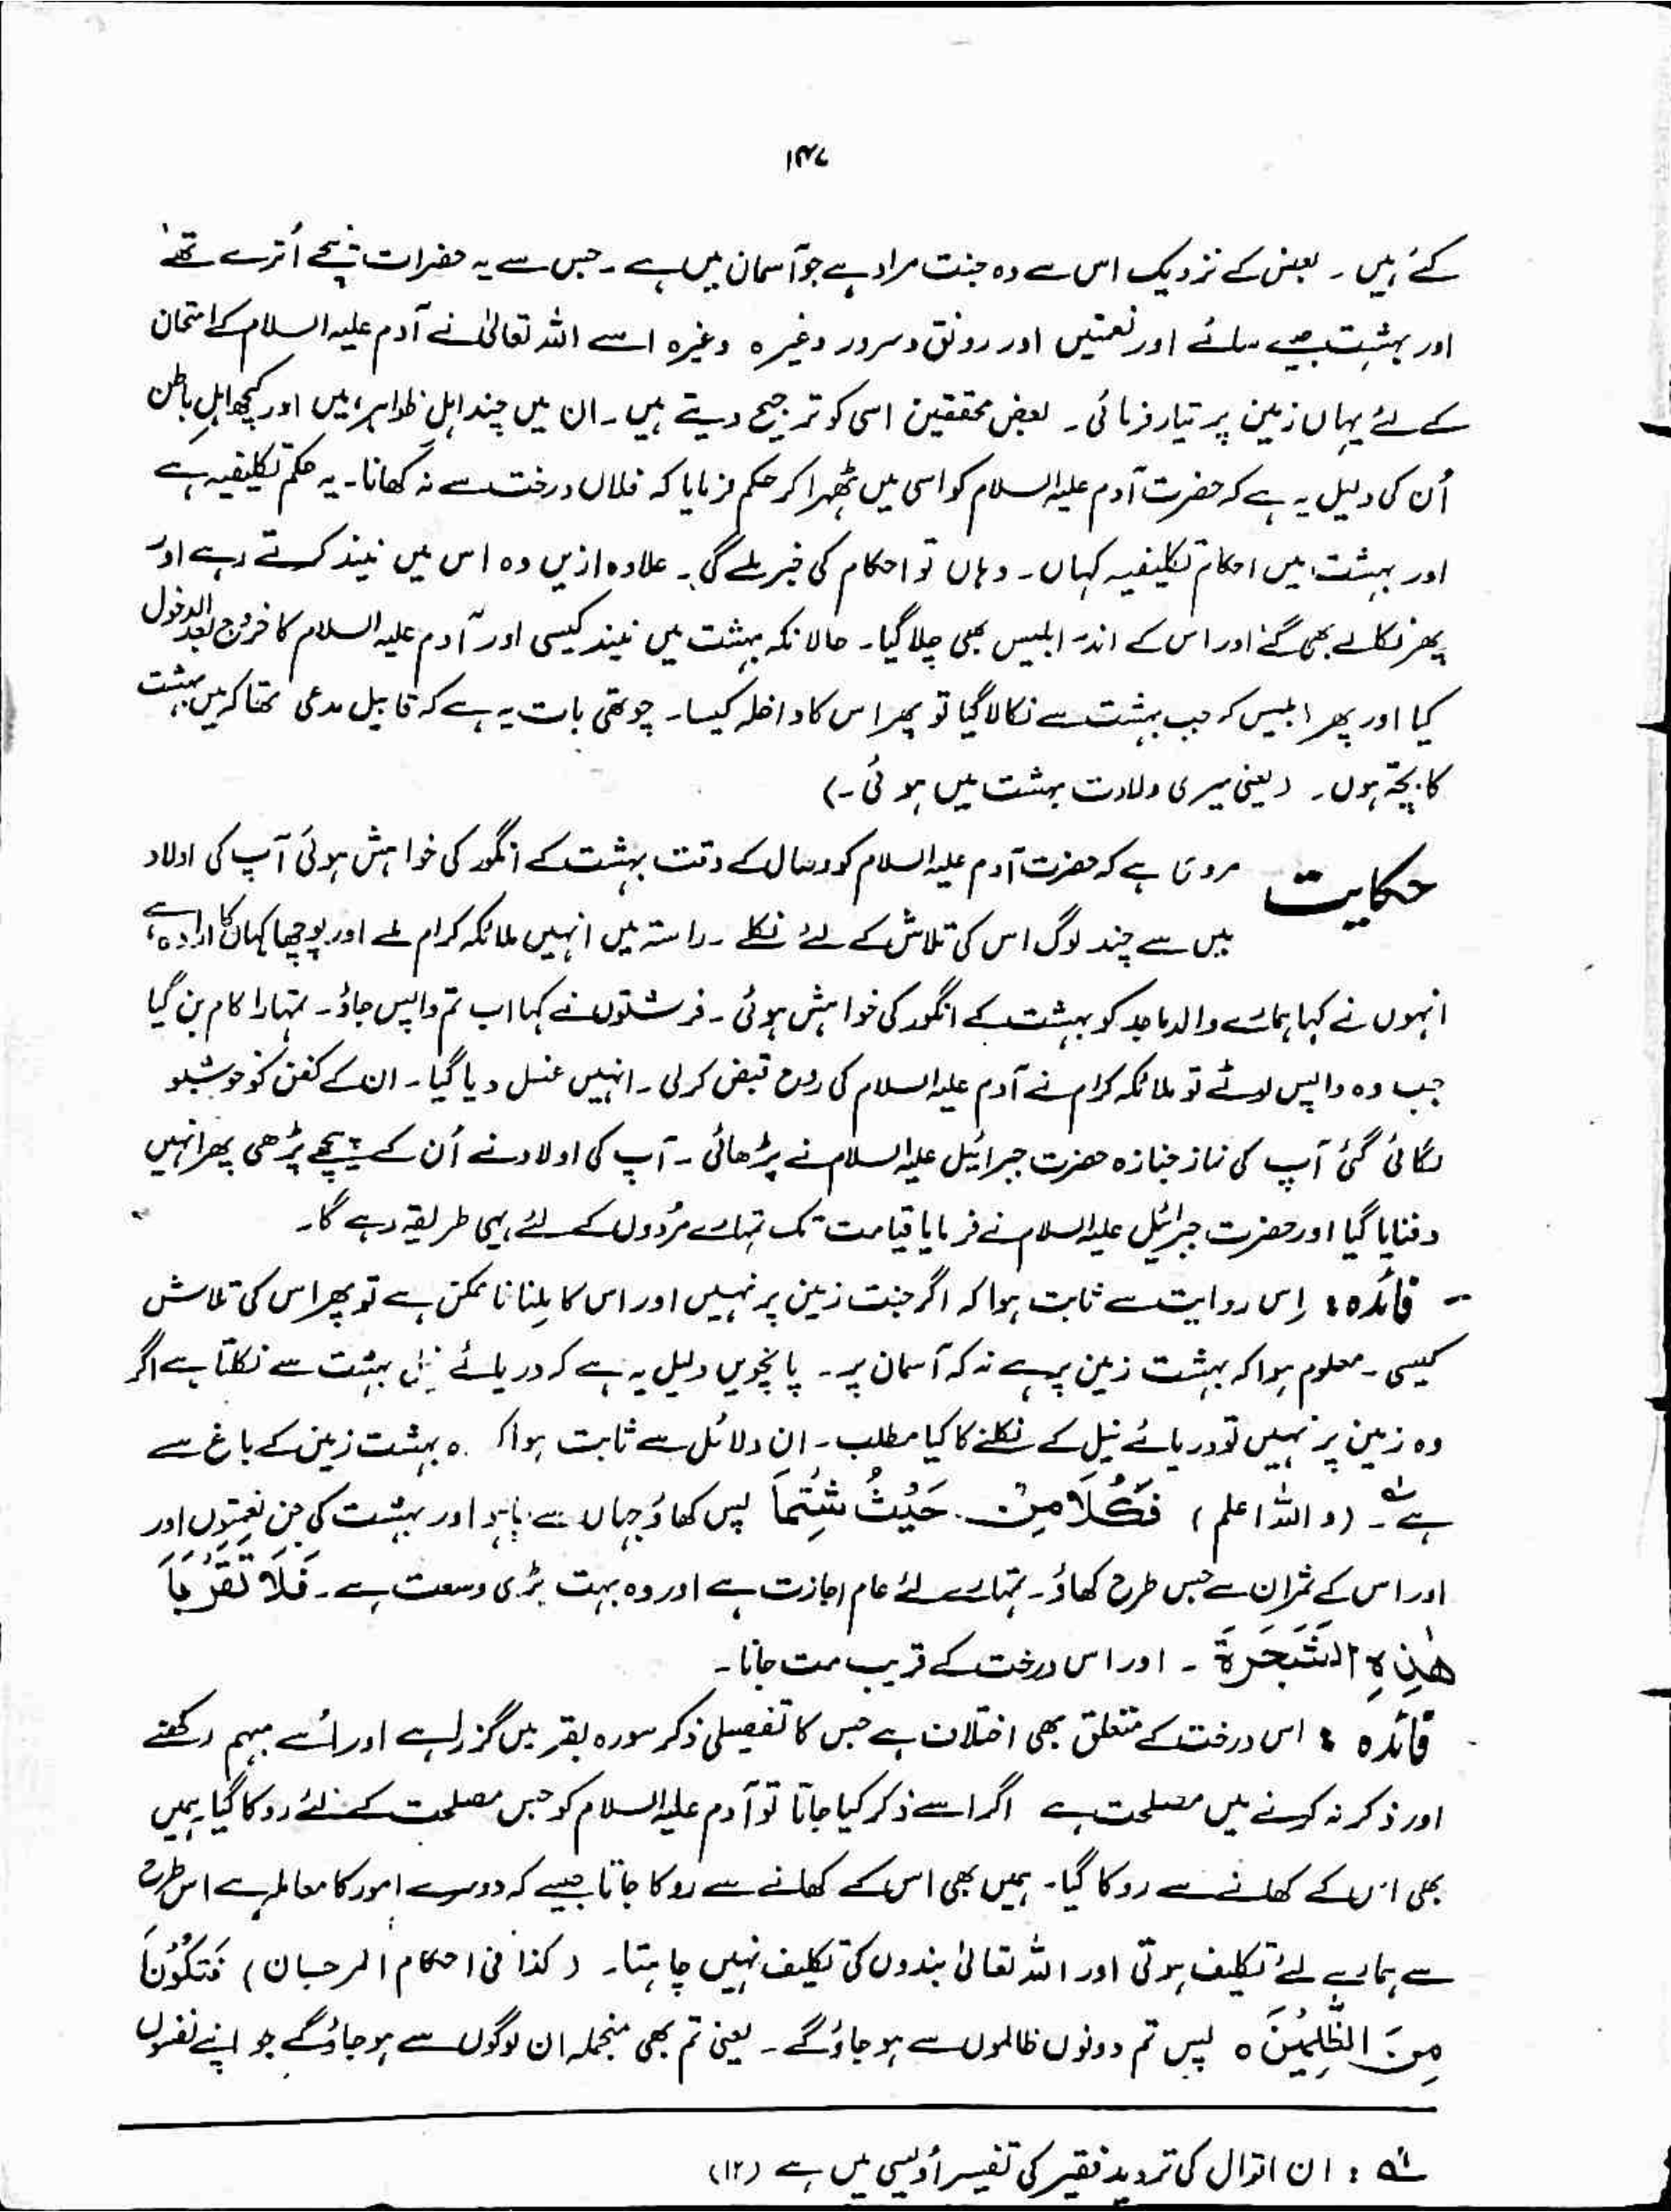 ۱۴۷
کے ہیں ۔ بعض کے نزدیک اس سے وہ جنت مراد ہے جو آسمان میں ہے ۔ جس سے یہ حضرات نیچے اُترے تھے
اور بہشت جیسے سائے اور نعمتیں اور رونق و سرور وغیرہ وغیرہ اسے اللہ تعالیٰ نے آدم علیہ السلام کے امتحان
کے لئے یہاں زمین پر تیار فرمائی ۔ بعض محققین اسی کو ترجیح دیتے ہیں ۔ ان میں چند اہل ظواہر ہیں اور کچھ اہلِ باطن
اُن کی دلیل یہ ہے کہ حضرت آدم علیہ السلام کو اسی میں ٹھہرا کر حکم فرمایا کہ فلاں درخت سے نہ کھانا ۔ یہ حکم تکلیفیہ ہے
اور بہشت میں احکام تکلیفیہ کہاں ۔ وہاں تو احکام کی خبر ملے گی ۔ علاوہ ازیں وہ اس میں نیند کرتے رہے اور
پھر نکالے بھی گئے اور اس کے اندر ابلیس بھی چلا گیا ۔ حالانکہ بہشت میں نیند کیسی اور آدم علیہ السلام کا خروج بعد الدخول
کیا اور پھر ابلیس کہ جب بہشت سے نکالا گیا تو پھر اس کا داخلہ کیسا ۔ چوتھی بات یہ ہے کہ قابیل مدعی تھا کہ میں بہشت
کا بچّہ ہوں ۔ (یعنی میری ولادت بہشت میں ہوئی ۔)
حکایت مروی ہے کہ حضرت آدم علیہ السلام کو وصال کے وقت بہشت کے انگور کی خواہش ہوئی آپ کی اولاد
میں سے چند لوگ اس کی تلاش کے لئے نکلے ۔ راستہ میں انہیں ملائکہ کرام ملے اور پوچھا کہاں کا ارادہ ہے
انہوں نے کہا ہمارے والد ماجد کو بہشت کے انگور کی خواہش ہوئی ۔ فرشتوں نے کہا اب تم واپس جاؤ ۔ تمہارا کام بن گیا
جب وہ واپس لوٹے تو ملائکہ کرام نے آدم علیہ السلام کی روح قبض کر لی ۔ انہیں غسل دیا گیا ۔ ان کے کفن کو خوشبو
لگائی گئی آپ کی نماز جنازہ حضرت جبرائیل علیہ السلام نے پڑھائی ۔ آپ کی اولاد نے اُن کے پیچھے پڑھی پھر انہیں
دفنایا گیا اور حضرت جبرائیل علیہ السلام نے فرمایا قیامت تک تمہارے مُردوں کے لئے یہی طریقہ رہے گا ۔
فائدہ : اِس روایت سے ثابت ہوا کہ اگر جنت زمین پر نہیں اور اس کا مِلنا ناممکن ہے تو پھر اس کی تلاش
کیسی ۔ معلوم ہوا کہ بہشت زمین پر ہے نہ کہ آسمان پر ۔ پانچویں دلیل یہ ہے کہ دریائے نیل بہشت سے نکلتا ہے اگر
وہ زمین پر نہیں تو دریائے نیل کے نکلنے کا کیا مطلب ۔ ان دلائل سے ثابت ہوا کہ وہ بہشت زمین کے باغ سے
ہے ؂۱ ۔ (واللہ اعلم) فَکُلَا مِنْ حَیْثُ شِئْتُمَا پس کھاؤ جہاں سے چاہو اور بہشت کی جن نعمتوں اور
اور اس کے ثمران سے جس طرح کھاؤ ۔ تمہارے لئے عام اجازت ہے اور وہ بہت بڑی وسعت ہے ۔ فَلَا تَقْرَبَا
ھٰذِہِ الشَّجَرَۃَ ۔ اور اس درخت کے قریب مت جانا ۔
فائدہ : اس درخت کے متعلق بھی اختلاف ہے جس کا تفصیلی ذکر سورہ بقر میں گزرا ہے اور اُسے مبہم رکھنے
اور ذکر نہ کرنے میں مصلحت ہے اگر اسے ذکر کیا جاتا تو آدم علیہ السلام کو جس مصلحت کے لئے روکا گیا ہمیں
بھی اس کے کھانے سے روکا گیا ۔ ہمیں بھی اس کے کھانے سے روکا جاتا جیسے کہ دوسرے امور کا معاملہ ہے اس طرح
سے ہمارے لئے تکلیف ہوتی اور اللہ تعالیٰ بندوں کی تکلیف نہیں چاہتا ۔ (کذا فی احکام المرجان) فَتَکُوْنَا
مِنَ الظّٰلِمِیْنَ ہ پس تم دونوں ظالموں سے ہو جاؤ گے ۔ یعنی تم بھی منجملہ ان لوگوں سے ہو جاؤ گے جو اپنے نفسوں
؂۱ : ان اقوال کی تردید فقیر کی تفسیر اُویسی میں ہے (۱۲)